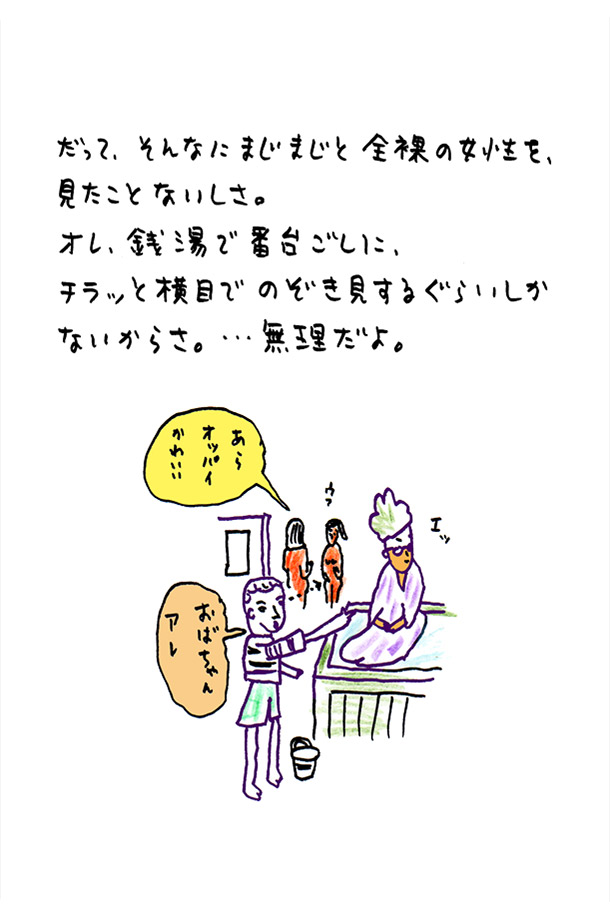 だって、そんなにまじまじと全裸の女性を、
見たことないしさ。
オレ、銭湯で番台ごしに、
チラッと横目でのぞき見するぐらいしか
ないからさ。…無理だよ。
あら
オッパイ
かわいい
ウフ
エッ
おばちゃん
アレ